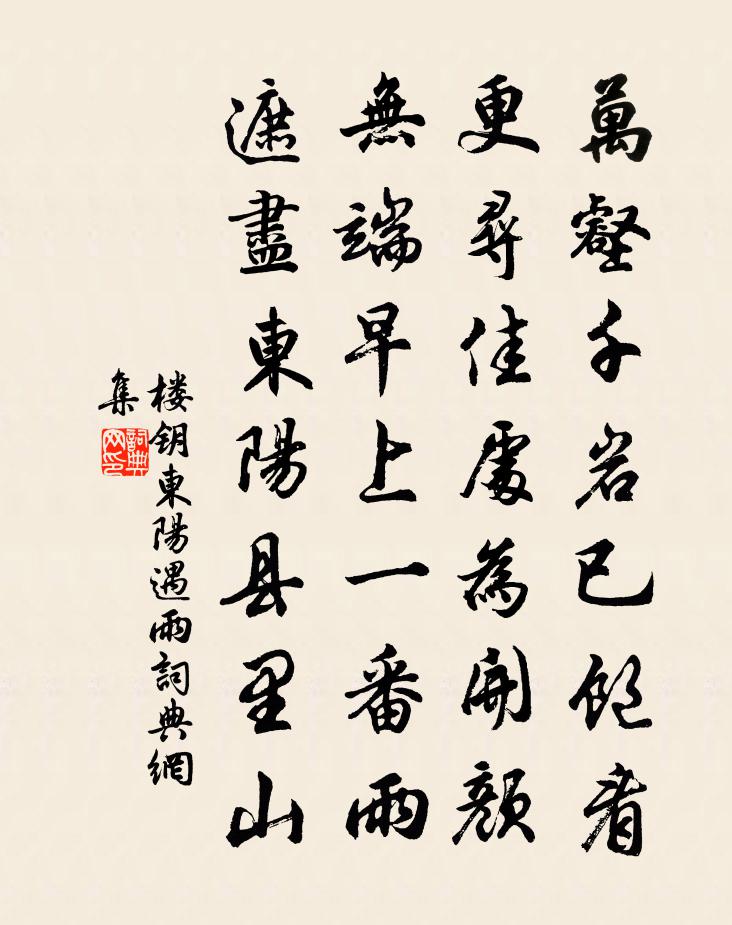 萬壑千岩已飽看
更尋佳處為開顏
無端早上一番雨
遮盡東陽县里山
楼钥東陽遇雨詞典網
集
詞典網印